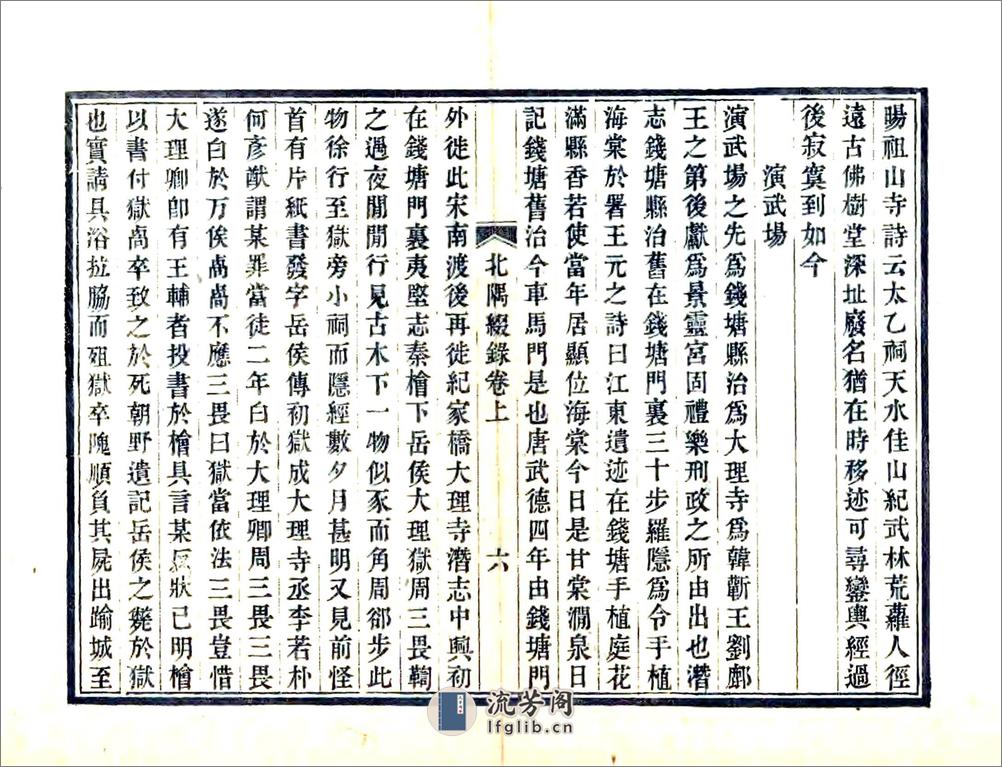 賜祖山寺詩云太乙祠天水佳山紀武林荒蘿人徑
遠古佛樹堂深址廢名猶在時移迹可尋鑾輿經過
後寂寞到如今
演武場
演武場之先爲錢塘縣治爲大理寺爲韓蘄王劉鄜
王之第後獻爲景靈宮固禮樂刑政之所由出也潛
志錢塘縣治舊在錢塘門裏三十步羅隱爲令手植
海棠於署王元之詩曰江東遺迹在錢塘手植庭花
滿縣香若使當年居顯位海棠今日是甘棠澗泉日
記錢塘舊治今車馬門是也唐武德四年由錢塘門
北隅綴錄卷上 六
外徙此宋南渡後再徙紀家橋大理寺潛志中興初
在錢塘門裏夷堅志秦檜下岳侯大理獄周三畏鞫
之過夜閒閒行見古木下一物似豕而角周卻步此
物徐行至獄旁小祠而隱經數夕月甚明又見前怪
首有片紙書發字岳侯傳初獄成大理寺丞李若朴
何彥猷謂某罪當徒二年白於大理卿周三畏三畏
遂白於万俟卨卨不應三畏曰獄當依法三畏豈惜
大理卿卽有王輔者投書於檜具言某反狀已明檜
以書付獄卨卒致之於死朝野遺記岳侯之斃於獄
也實請具浴拉脇而殂獄卒隗順負其屍出踰城至
流芳阁
lfglib.cn